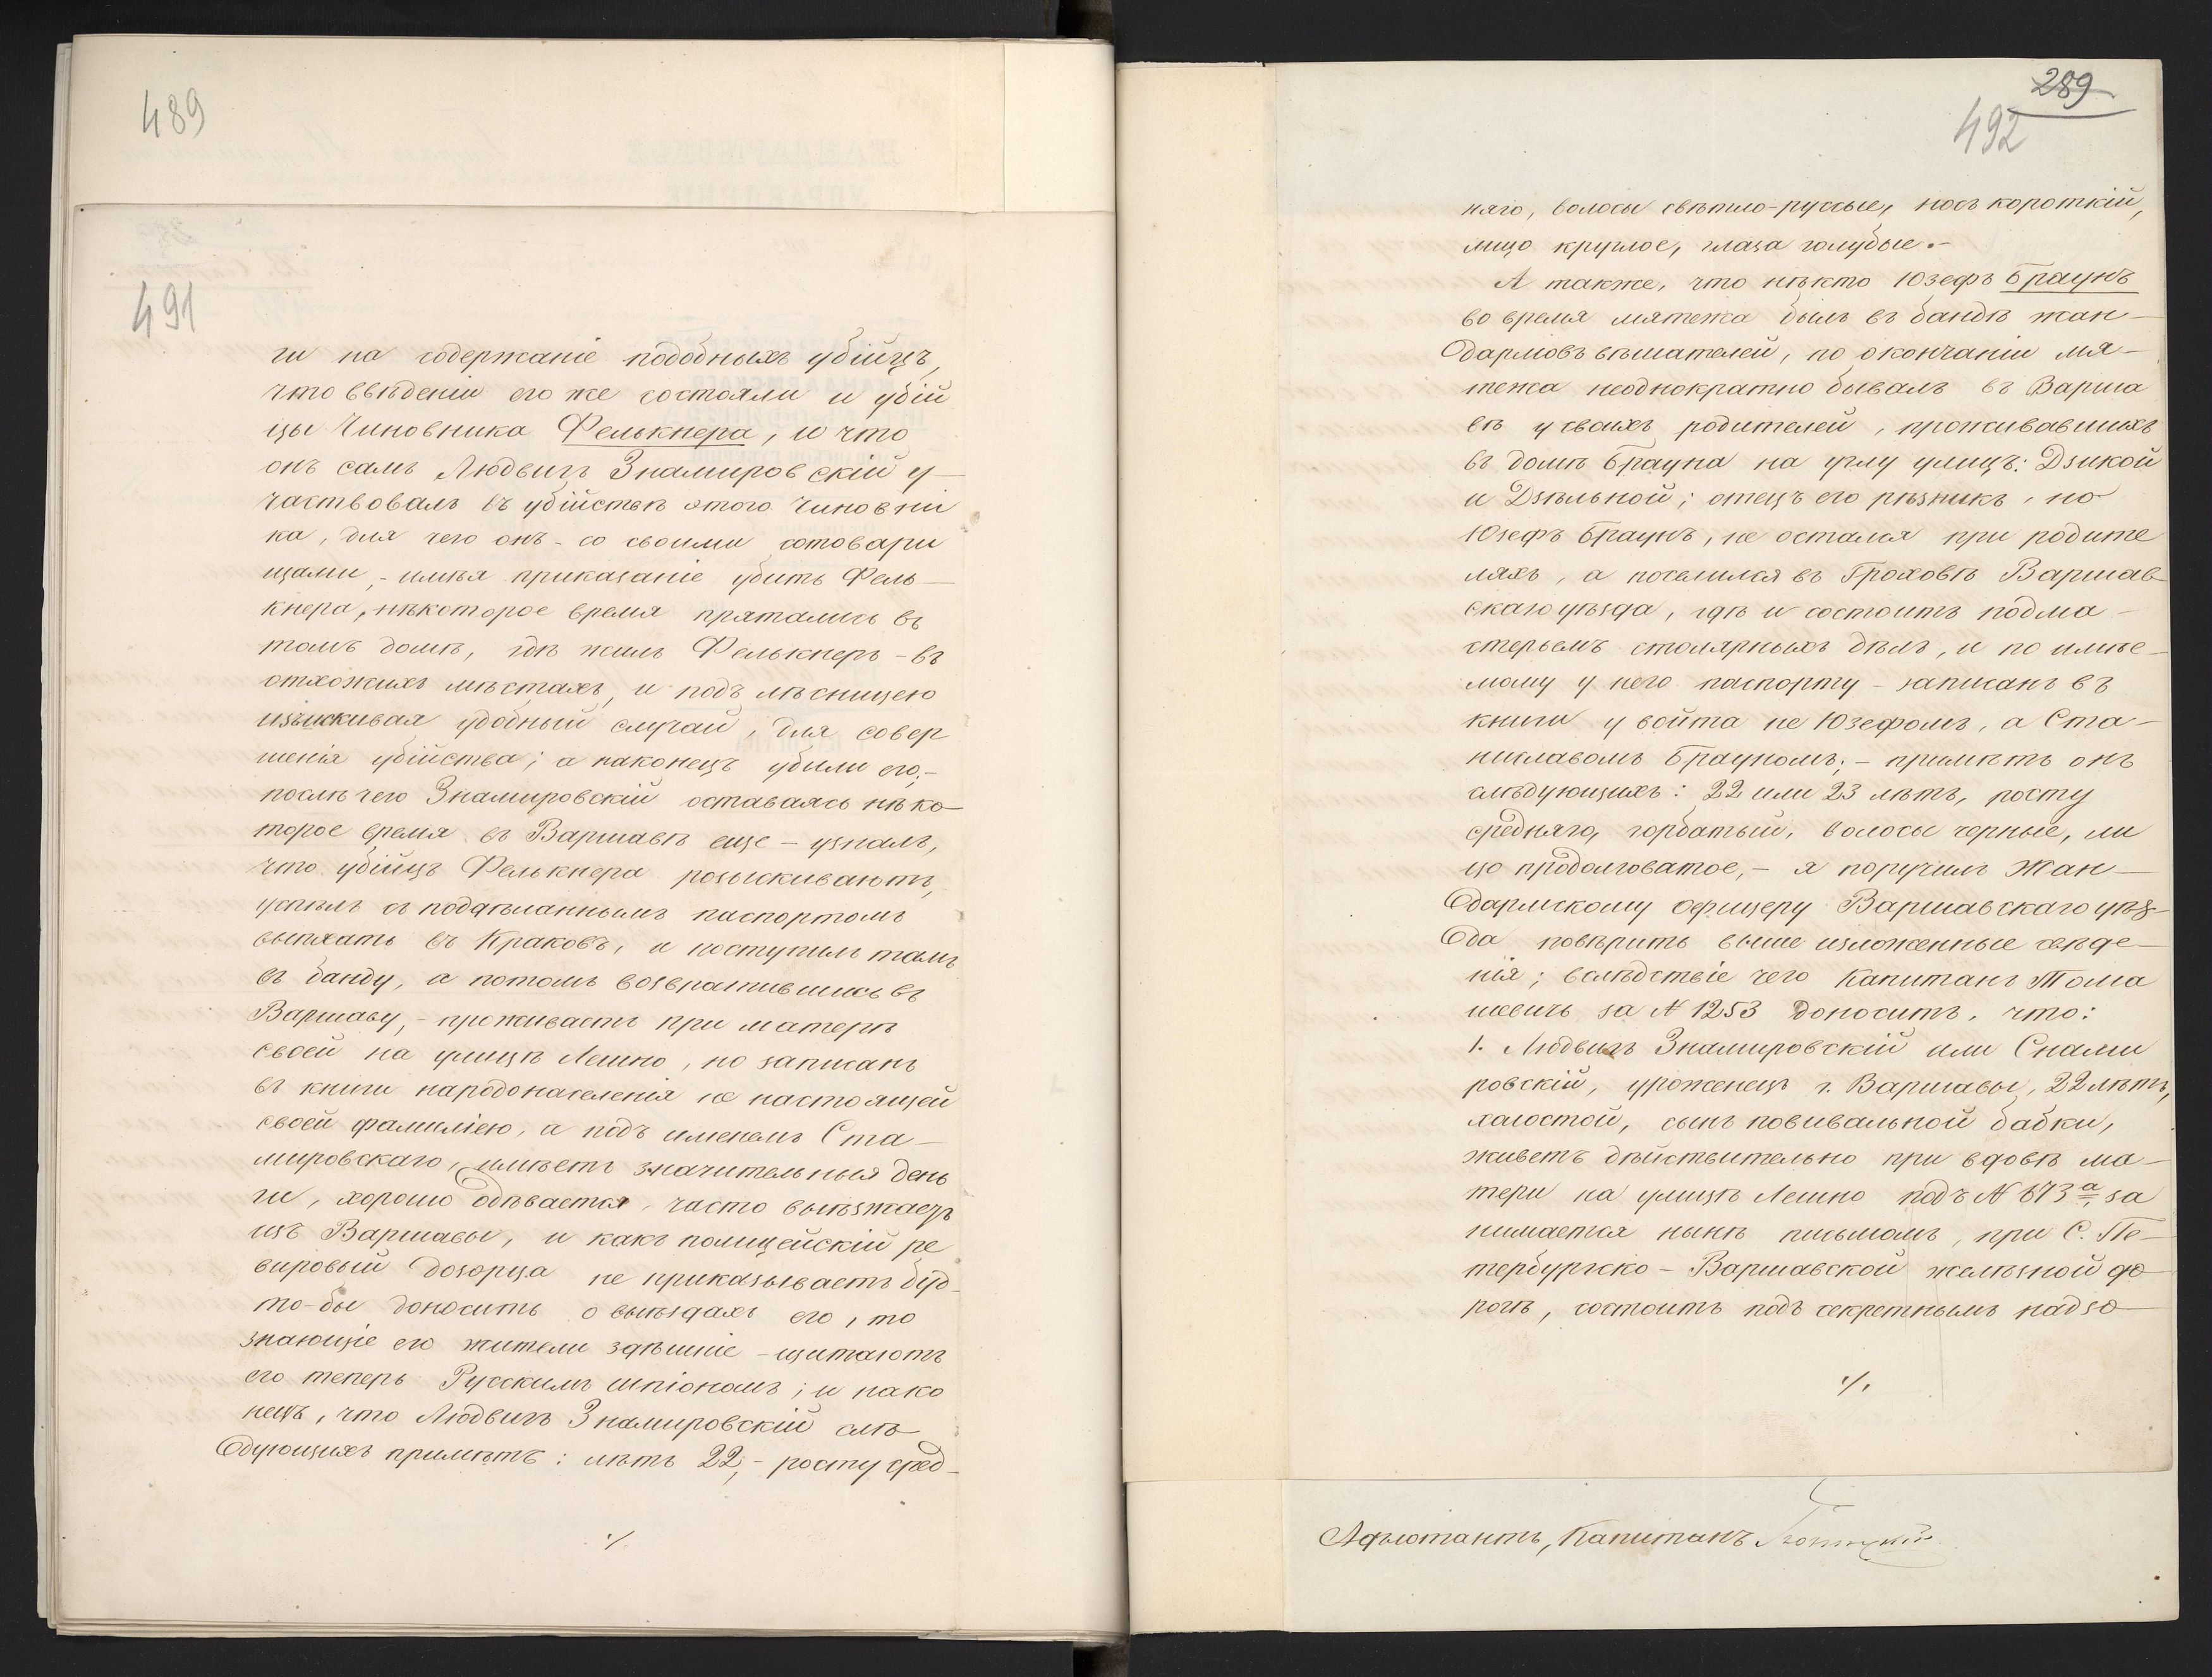 489
491
ги на содержаніе подобныхъ убійцъ,
что ввѣденіи его же состояли и убій
цы Чиновника Фелькнера, и что
онъ самъ Людвигъ Знамировскій у-
частвовалъ въ убійствѣ этого Чиновни
ка, для чего онъ - со своими сотовари
щами, - имѣя приказаніе убить Фель-
кнера, нѣкоторое время прятались въ
томъ домѣ, гдѣ жилъ Фелькнеръ - въ
отхожихъ мѣстахъ, и подъ лѣсницею
изъискивая удобный случай, для совер
шенія убійства; а наконецъ убили его;-
послѣ чего Знамировскій оставаясь нѣко-
торое время въ Варшавѣ еще - узналъ,
что убійцъ Фелькнера розыскиваютъ,
успѣлъ съ поддѣланнымъ паспортомъ
выѣхать въ Краковъ, и поступилъ тамъ
въ банду, а потомъ возвратившись въ
Варшаву, - проживаетъ при матерѣ
своей на улицѣ Лешно, но записанъ
въ книги народонаселенія не настоящей
своей фамиліею, а подъ именемъ Ста-
мировскаго, имѣетъ значительныя день
ги, хорошо одѣвается, часто выѣзжаетъ
изъ Варшавы, и какъ полицейскій ре
вировый дозорца не приказываетъ буд-
то-бы доносить о выѣздахъ его, то
знающіе его жители здѣшніе - щитаютъ
его теперь Русскимъ шпіономъ; и нако
нецъ, что Людвигъ Знамировскій слѣ-
дующихъ примѣтъ: лѣтъ 22,- росту сред-
./.
289
492
няго, волосы свѣтло-руссые, носъ короткій,
лицо круглое, глаза голубые.-
А также, что нѣкто Юзефъ Браунъ
во время мятежа былъ въ бандѣ жан-
дармовъ вѣшателей, по окончаніи мя-
тежа неоднократно бывалъ въ Варша
вѣ у своихъ родителей, проживавшихъ
въ домѣ Брауна на углу улицъ: Дзикой
и Дзѣльной; отецъ его рѣзникъ, но
Юзефъ Браунъ, не остался при родите
ляхъ, а поселился въ Гроховѣ Варшав-
скаго уѣзда, гдѣ и состоитъ подма-
стерьемъ столярныхъ дѣлъ, и по имѣе-
мому у него паспорту - записанъ въ
книги у войта не Юзефомъ, а Ста-
ниславомъ Брауномъ; - примѣтъ онъ
слѣдующихъ: 22 или 23 лѣтъ, росту
средняго, горбатый, волосы черные, ли
цо продолговатое, - я поручилъ Жан-
дармскому офицеру Варшавскаго уѣз-
да повѣрить выше изложенные свѣде-
нія; вслѣдствіе чего Капитанъ Тома
шевичъ за № 1253 доноситъ, что:
1. Людвигъ Знамировскій или Снами
ровскій, уроженецъ г. Варшавы, 22 лѣтъ,
холостой, сынъ повивальной бабки,
живетъ дѣйствительно при вдовѣ ма-
тери на улицѣ Лешно подъ № 673ᵃ, за
нимается нынѣ письмомъ, при С. Пе-
тербургско - Варшавской желѣзной до-
рогѣ, состоитъ подъ секретнымъ надзо-
./.
Адъютантъ, Капитанъ